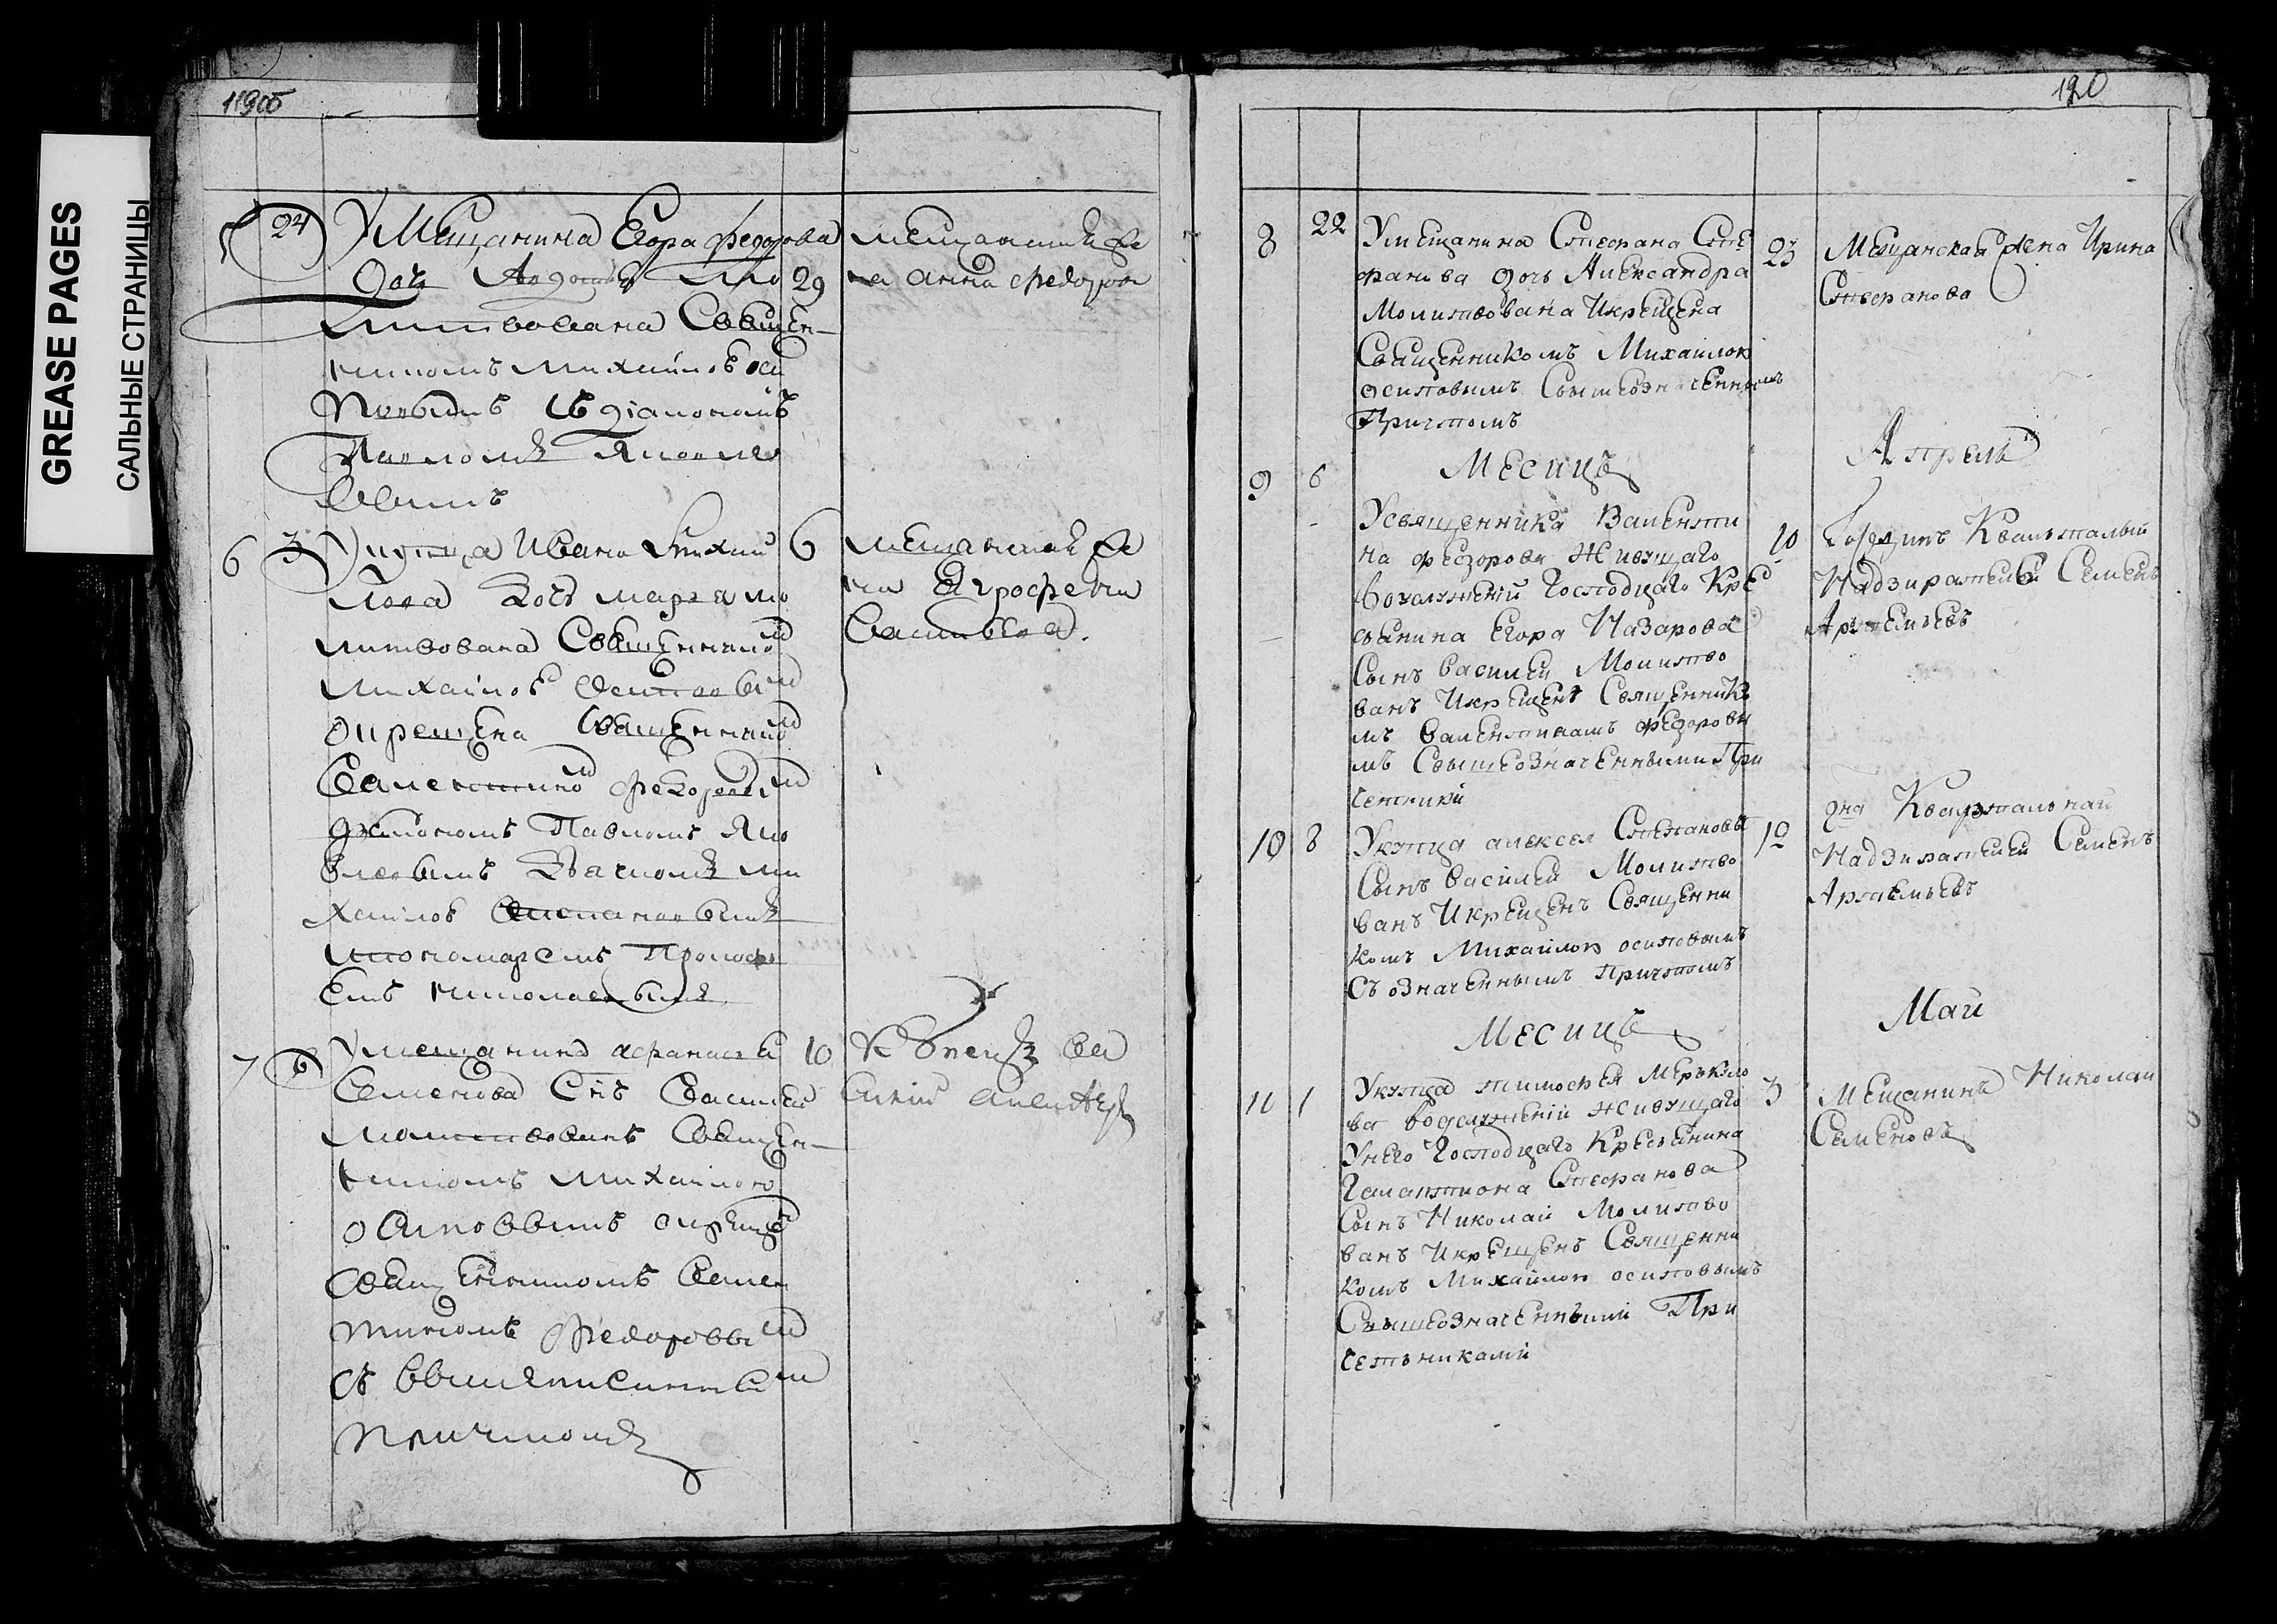 GREASE PAGES
САЛЬНЫЕ СТРАНИЦЫ
119об
24 У Мещанина Егора федорова
дочь мо
литвована Священ
никомъ михайловъ оси
повымъ съ діакономъ
Павломъ Яковле
вымъ
29 мещанская же
на анна федорова
6 3 У купца Ивана
дочь марья мо
литвована Священником
михайловъ осиповым
окрещена Священником
Валентином федоровым
діакономъ Павломъ Яко
влевымъ Дьячкомъ ми
хайловъ
пономаремъ Прокофь
емъ николаевымъ
6 мещанская же
на Агрофена
Васильева.
7 6 У мещанина афанасья
Семенова Снъ Василей
молитвованъ Священ
никомъ михайлою
осиповымъ окрещенъ
Священникомъ Вален
тиномъ федоровым
съ вышеписанным
причтомъ
10 Купецъ Ва
силий
120
8 22 У мещанина Стефана Сте
фанова дочь Александра
Молитвована Икрещена
Священникомъ Михаилом
осиповымъ Свышеозначеннымъ
Причтомъ
23 Мещанская жена Ирина
Стефанова
Месицъ Апрель
9 6 У священника Валенти
на федорова Живущаго
Господскаго Кре
стьянина Егора Назарова
Сынъ василей Молитво
ванъ Икрещенъ Священнико
мъ валентиномъ федоровы
мъ Свышеозначенными При
четники
10 Квартальный
Надзиратель Семенъ
Артемьевъ
10 8 У купца алексея Степанова
Сынъ василей Молитво
ванъ Икрещенъ Священни
комъ Михаилом осиповымъ
Съ означеннымъ Причтомъ
10 Квартальнай
Надзиратель Семенъ
Артемьевъ
Месицъ Май
11 1 У купца тимофея Меркуло
ва живущаго
Унего Господскаго Крестьянина
Галактиона Стефанова
Сынъ Николай Молитво
ванъ Икрещенъ Священни
комъ Михаилом осиповымъ
Свышеозначенными При
четниками
3 Мещанинъ Николай
Семеновъ